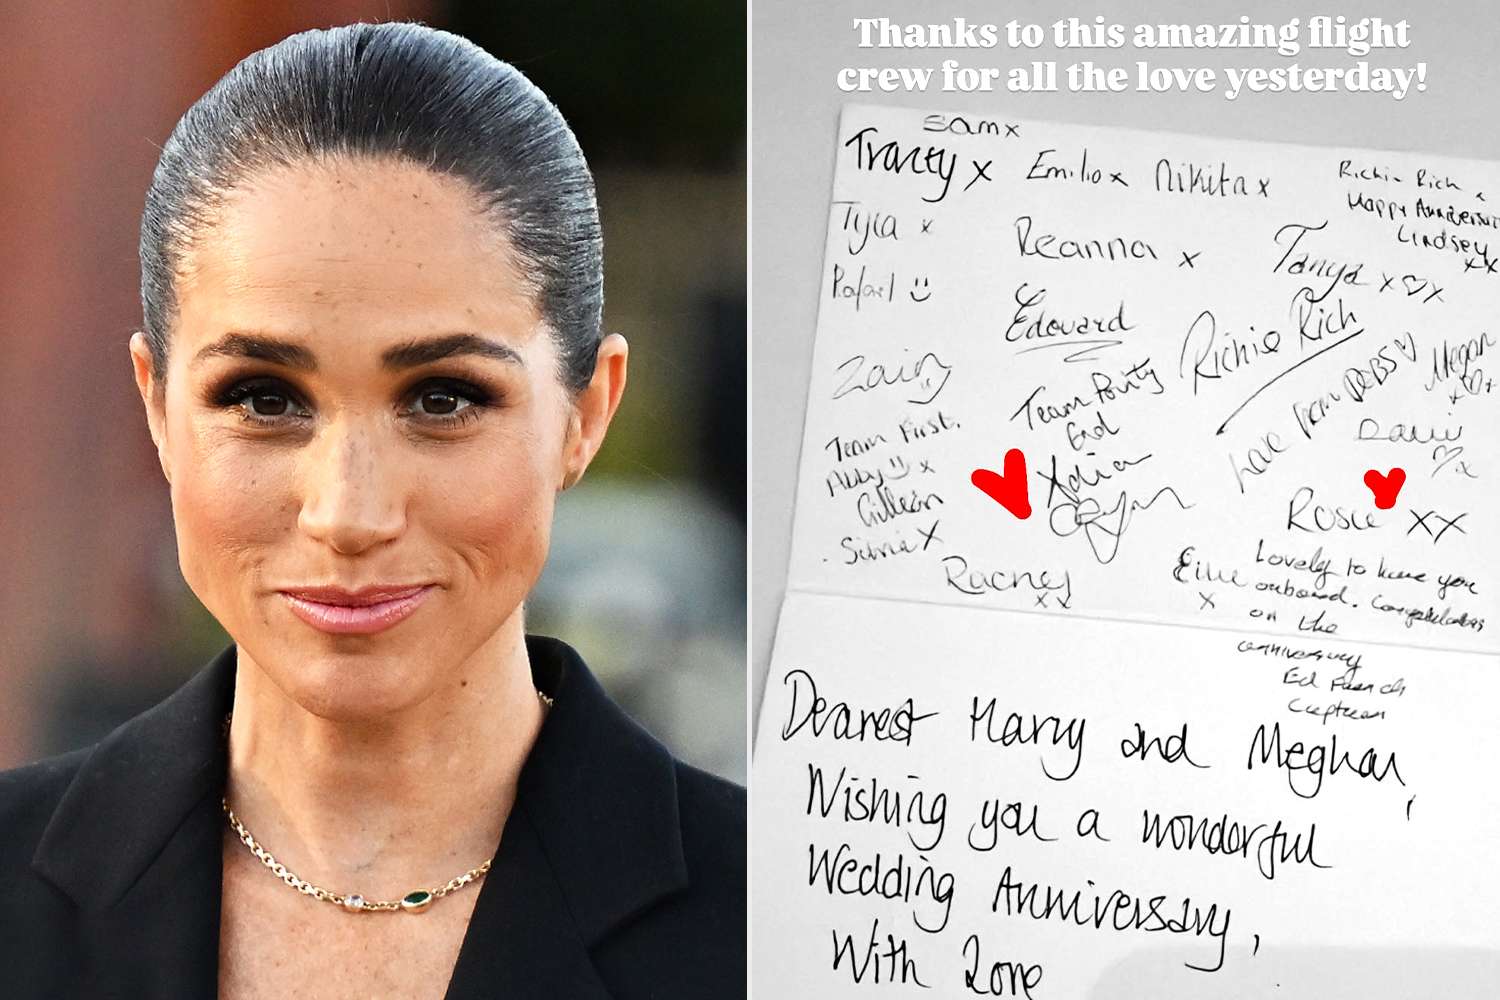 Thanks to this amazing flight
crew for all the love yesterday!
Sam x
Tracey x Emilio x Nikita x
Richie Rich x
Happy Anniversary
Lindsey
xx
Tyla x
Reanna x
Tanya x♡x
Rafael
Edouard
Richie Rich
Megan
Zain
Team Purity
End
Love from DOBS ♡
Team First.
Abby x
Gillean
Silvia X
Rosie XX
Rachel
xx
Lovely to have you
onboard. Congratulations
on the
anniversary
Ed French
Captain
Dearest Harry and Meghan,
Wishing you a wonderful
Wedding Anniversary,
With Love